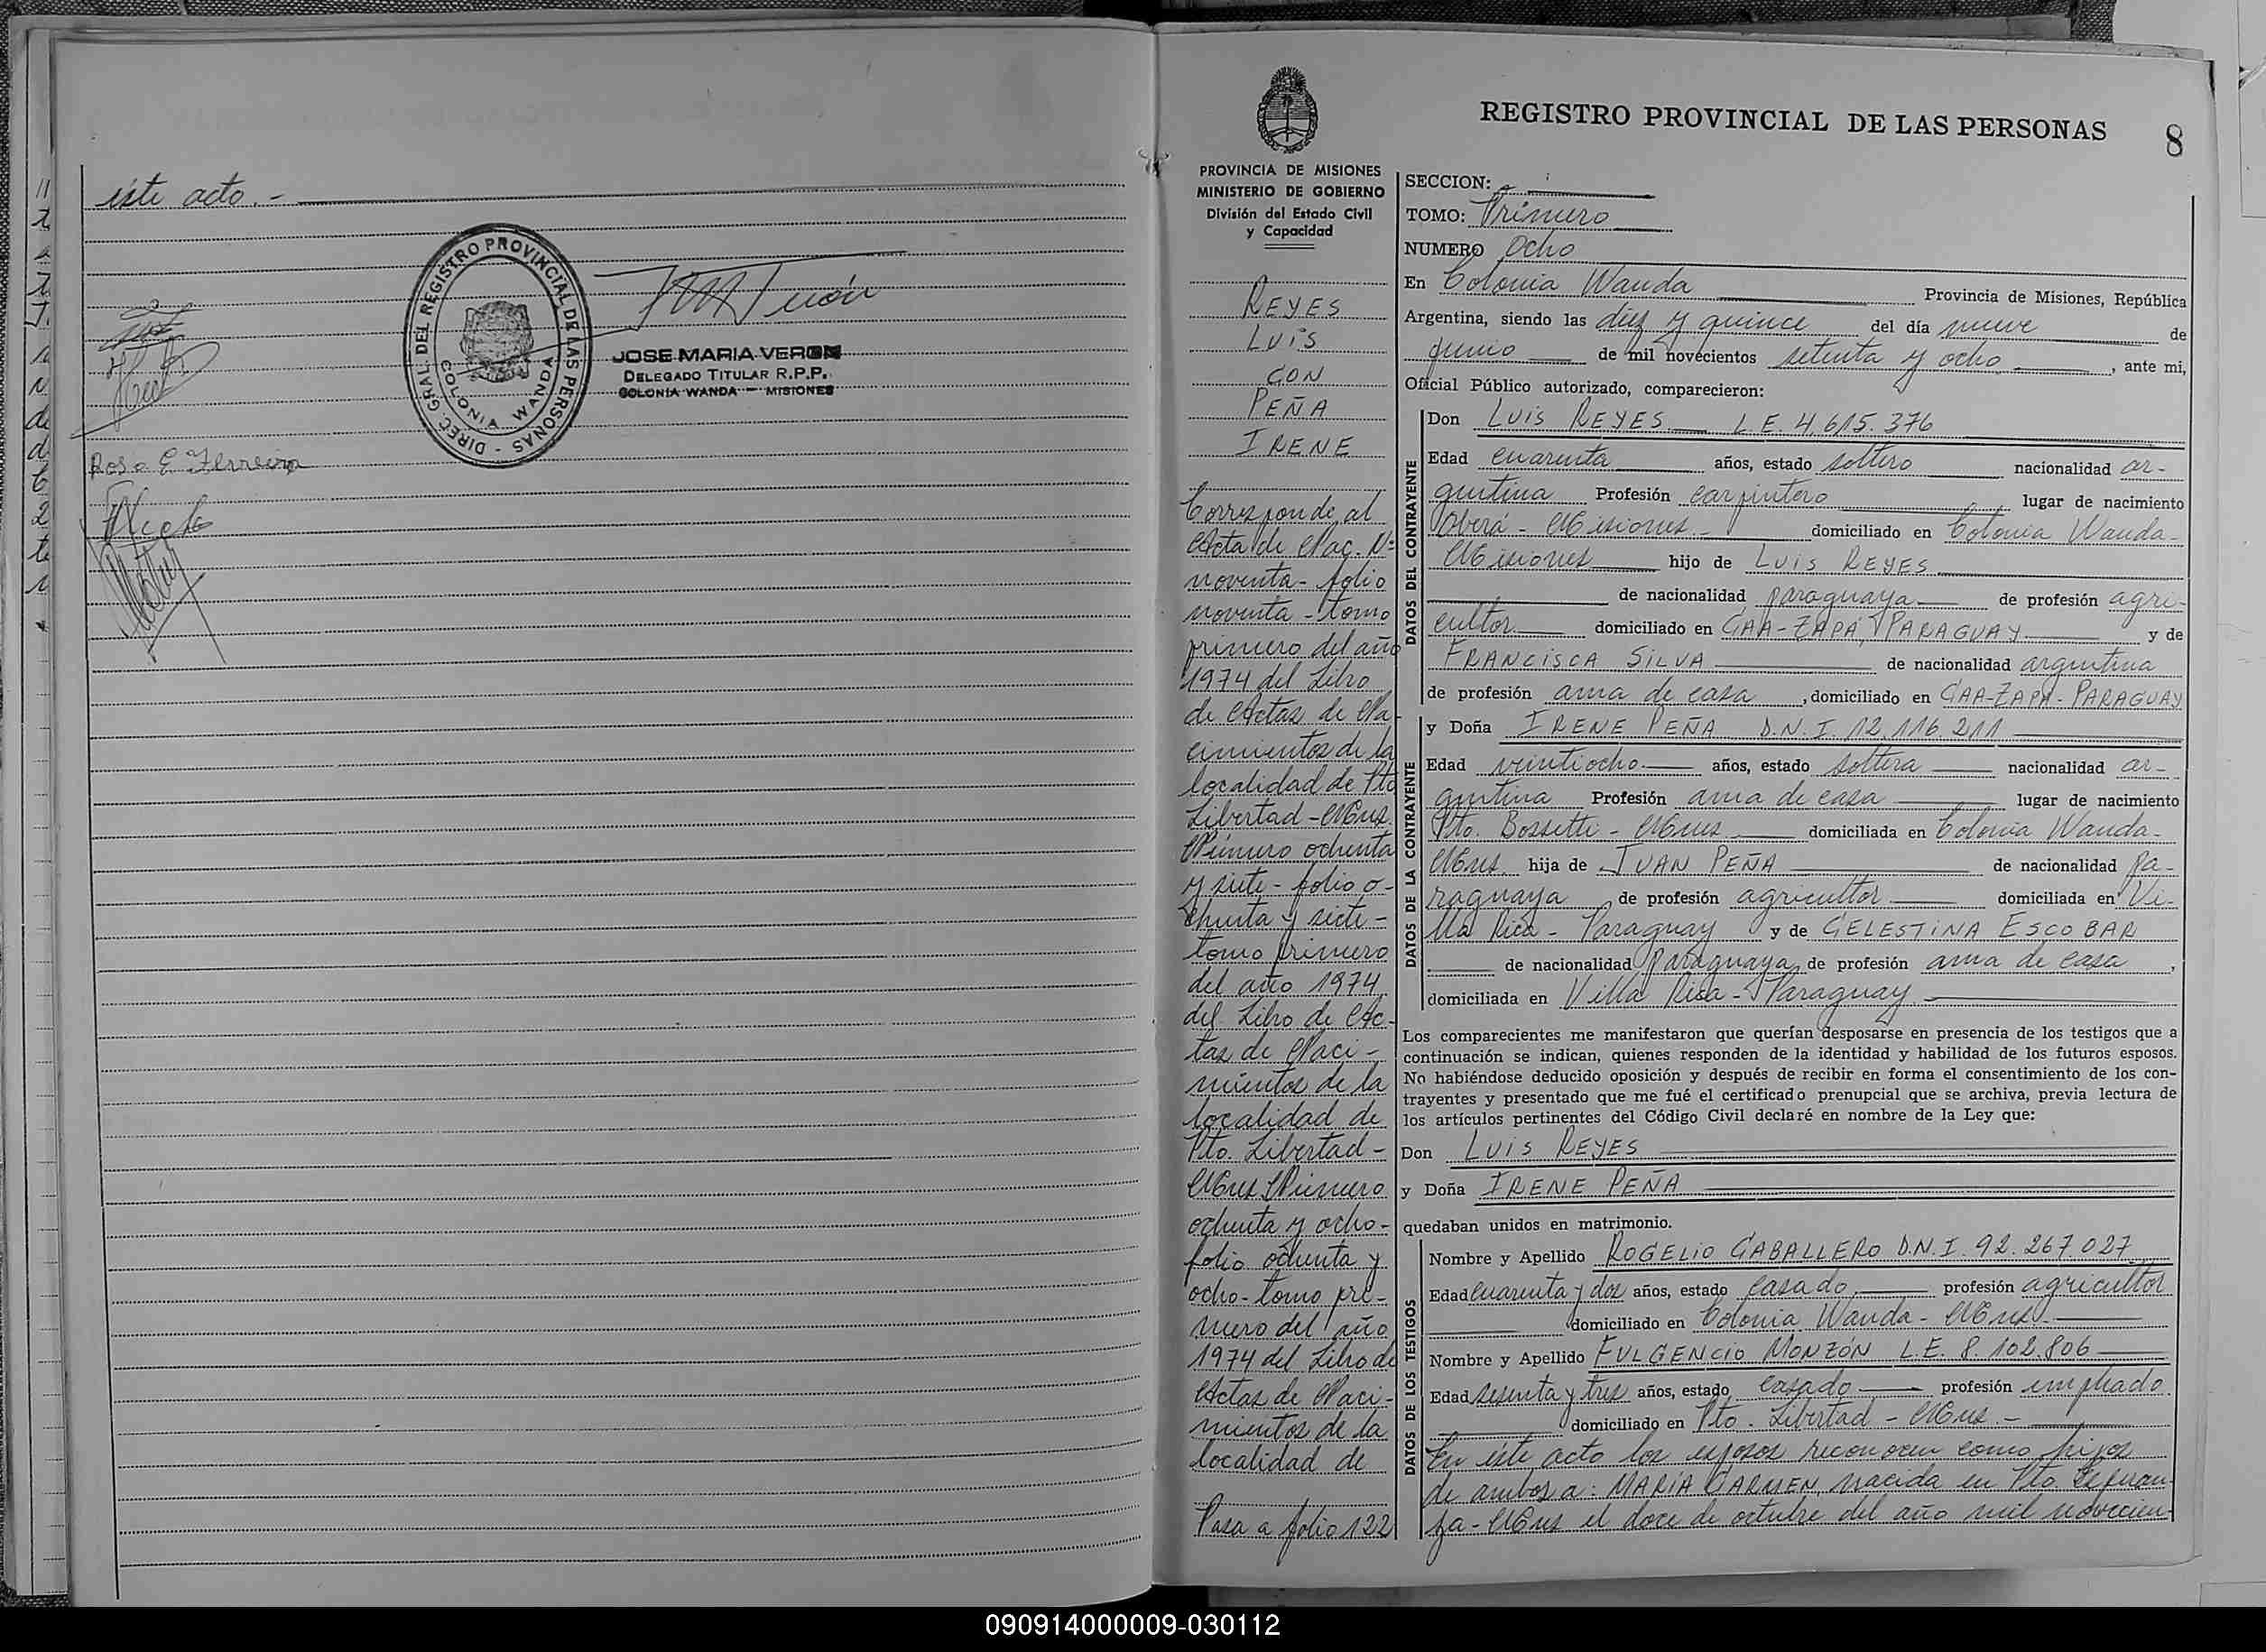 este acto.-
DIREC. GRAL. DEL REGISTRO PROVINCIAL DE LAS PERSONAS -
COLONIA WANDA
JOSE MARIA VERON
DELEGADO TITULAR R.P.P.
COLONIA WANDA - MISIONES
Rosa E Ferreira
REGISTRO PROVINCIAL DE LAS PERSONAS 8
PROVINCIA DE MISIONES
MINISTERIO DE GOBIERNO
División del Estado Civil
y Capacidad
REYES
LUIS
CON
PEÑA
IRENE
Corresponde al
Acta de Nac. Nº
noventa - folio
noventa - tomo
primero del año
1974 del Libro
de Actas de Na-
cimientos de la
localidad de Pto
Libertad - Mnes.
Número ochenta
y siete - folio o-
chenta y siete -
tomo primero
del año 1974
del Libro de Ac-
tas de Naci-
mientos de la
localidad de
Pto. Libertad -
Mnes Número
ochenta y ocho -
folio ochenta y
ocho - tomo pri-
mero del año
1974 del Libro de
Actas de Naci-
mientos de la
localidad de
Pasa a folio 122
SECCION:
TOMO: Primero
NUMERO Ocho
En Colonia Wanda Provincia de Misiones, República
Argentina, siendo las diez y quince del día nueve de
junio de mil novecientos setenta y ocho, ante mi,
Oficial Público autorizado, comparecieron:
DATOS DEL CONTRAYENTE
Don LUIS REYES L.E. 4.615.376
Edad cuarenta años, estado soltero nacionalidad ar-
gentina Profesión carpintero lugar de nacimiento
Oberá - Misiones.- domiciliado en Colonia Wanda-
Misiones hijo de LUIS REYES
de nacionalidad paraguaya de profesión agri-
cultor domiciliado en CAA-ZAPÁ, PARAGUAY y de
FRANCISCA SILVA de nacionalidad argentina
de profesión ama de casa, domiciliado en CAA-ZAPA - PARAGUAY
DATOS DE LA CONTRAYENTE
y Doña IRENE PEÑA D.N.I. 12.116.211
Edad veintiocho años, estado soltera nacionalidad ar-
gentina Profesión ama de casa lugar de nacimiento
Pto. Bossetti - Mnes domiciliada en Colonia Wanda-
Mnes. hija de JUAN PEÑA de nacionalidad pa-
raguaya de profesión agricultor domiciliada en Vi-
lla Rica - Paraguay y de CELESTINA ESCOBAR
de nacionalidad paraguaya de profesión ama de casa,
domiciliada en Villa Rica - Paraguay
Los comparecientes me manifestaron que querían desposarse en presencia de los testigos que a
continuación se indican, quienes responden de la identidad y habilidad de los futuros esposos.
No habiéndose deducido oposición y después de recibir en forma el consentimiento de los con-
trayentes y presentado que me fué el certificado prenupcial que se archiva, previa lectura de
los artículos pertinentes del Código Civil declaré en nombre de la Ley que:
Don LUIS REYES
y Doña IRENE PEÑA
quedaban unidos en matrimonio.
DATOS DE LOS TESTIGOS
Nombre y Apellido ROGELIO CABALLERO D.N.I. 92.267.027
Edad cuarenta y dos años, estado casado profesión agricultor
domiciliado en Colonia Wanda - Mnes.
Nombre y Apellido FULGENCIO MONZÓN L.E. 8.102.806
Edad sesenta y tres años, estado casado profesión empleado.
domiciliado en Pto. Libertad - Mnes.-
En este acto los esposos reconocen como hijos
de ambos a: MARIA CARMEN, nacida en Pto. Esperan-
za - Mnes el doce de octubre del año mil novecien-
090914000009-030112